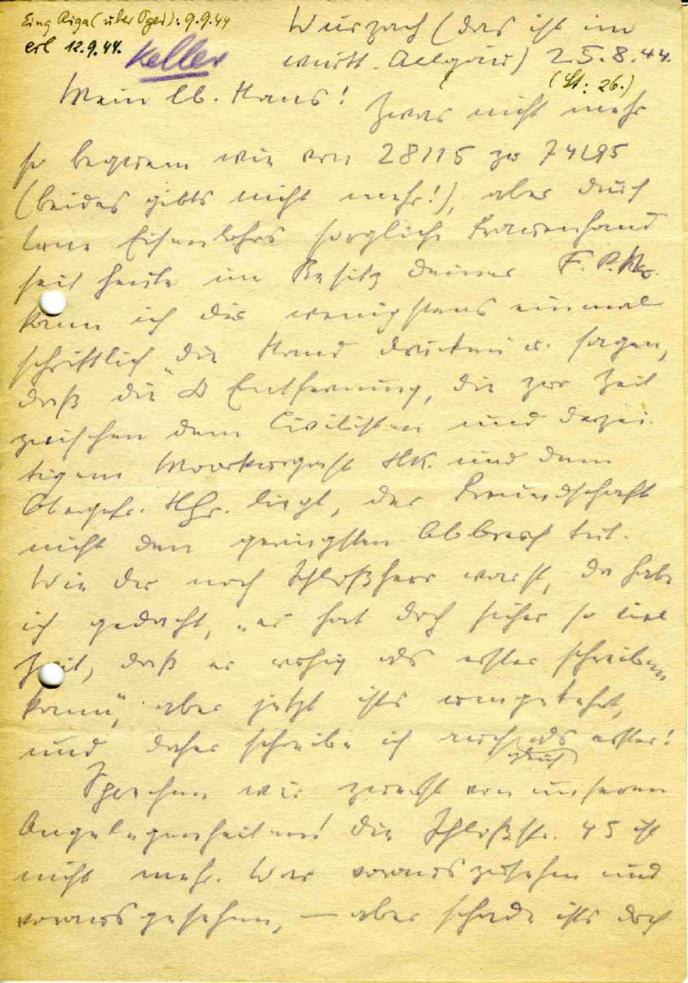 Eing Riga (über Ogei): 9.9.44
erl 12.9.44.
Keller
Wurzach (das ist im
württ. Allgäu) 25.8.44.
(St: 26.)
Mein lb. Hans! Zwar nicht mehr
so bequem wie von 28115 zu 74295
(beides gibts nicht mehr!), aber durch
Eisenlohrs sorgliche Frauenhand
seit heute im Besitz deiner F.P.No.
kann ich dir wenigstens einmal
schriftlich die Hand drücken u. sagen,
daß die Entfernung, die zur Zeit
zwischen dem Civilisten und derzei-
tigem HK. und dem
Obergefr. HGr. liegt, der Freundschaft
nicht den geringsten Abbruch tut.
Wie du noch Schloßherr warst, da habe
ich gedacht, "er hat doch sicher so viel
Zeit, daß er ruhig als erster schreiben
kann", aber jetzt ists umgekehrt,
und daher schreibe ich auch als erster!
Sprechen wir zuerst von unseren
Angelegenheiten! Die Schloßstr. 45 ist
nicht mehr. War vorauszusehen und
vorausgesehen, – aber schade ists doch